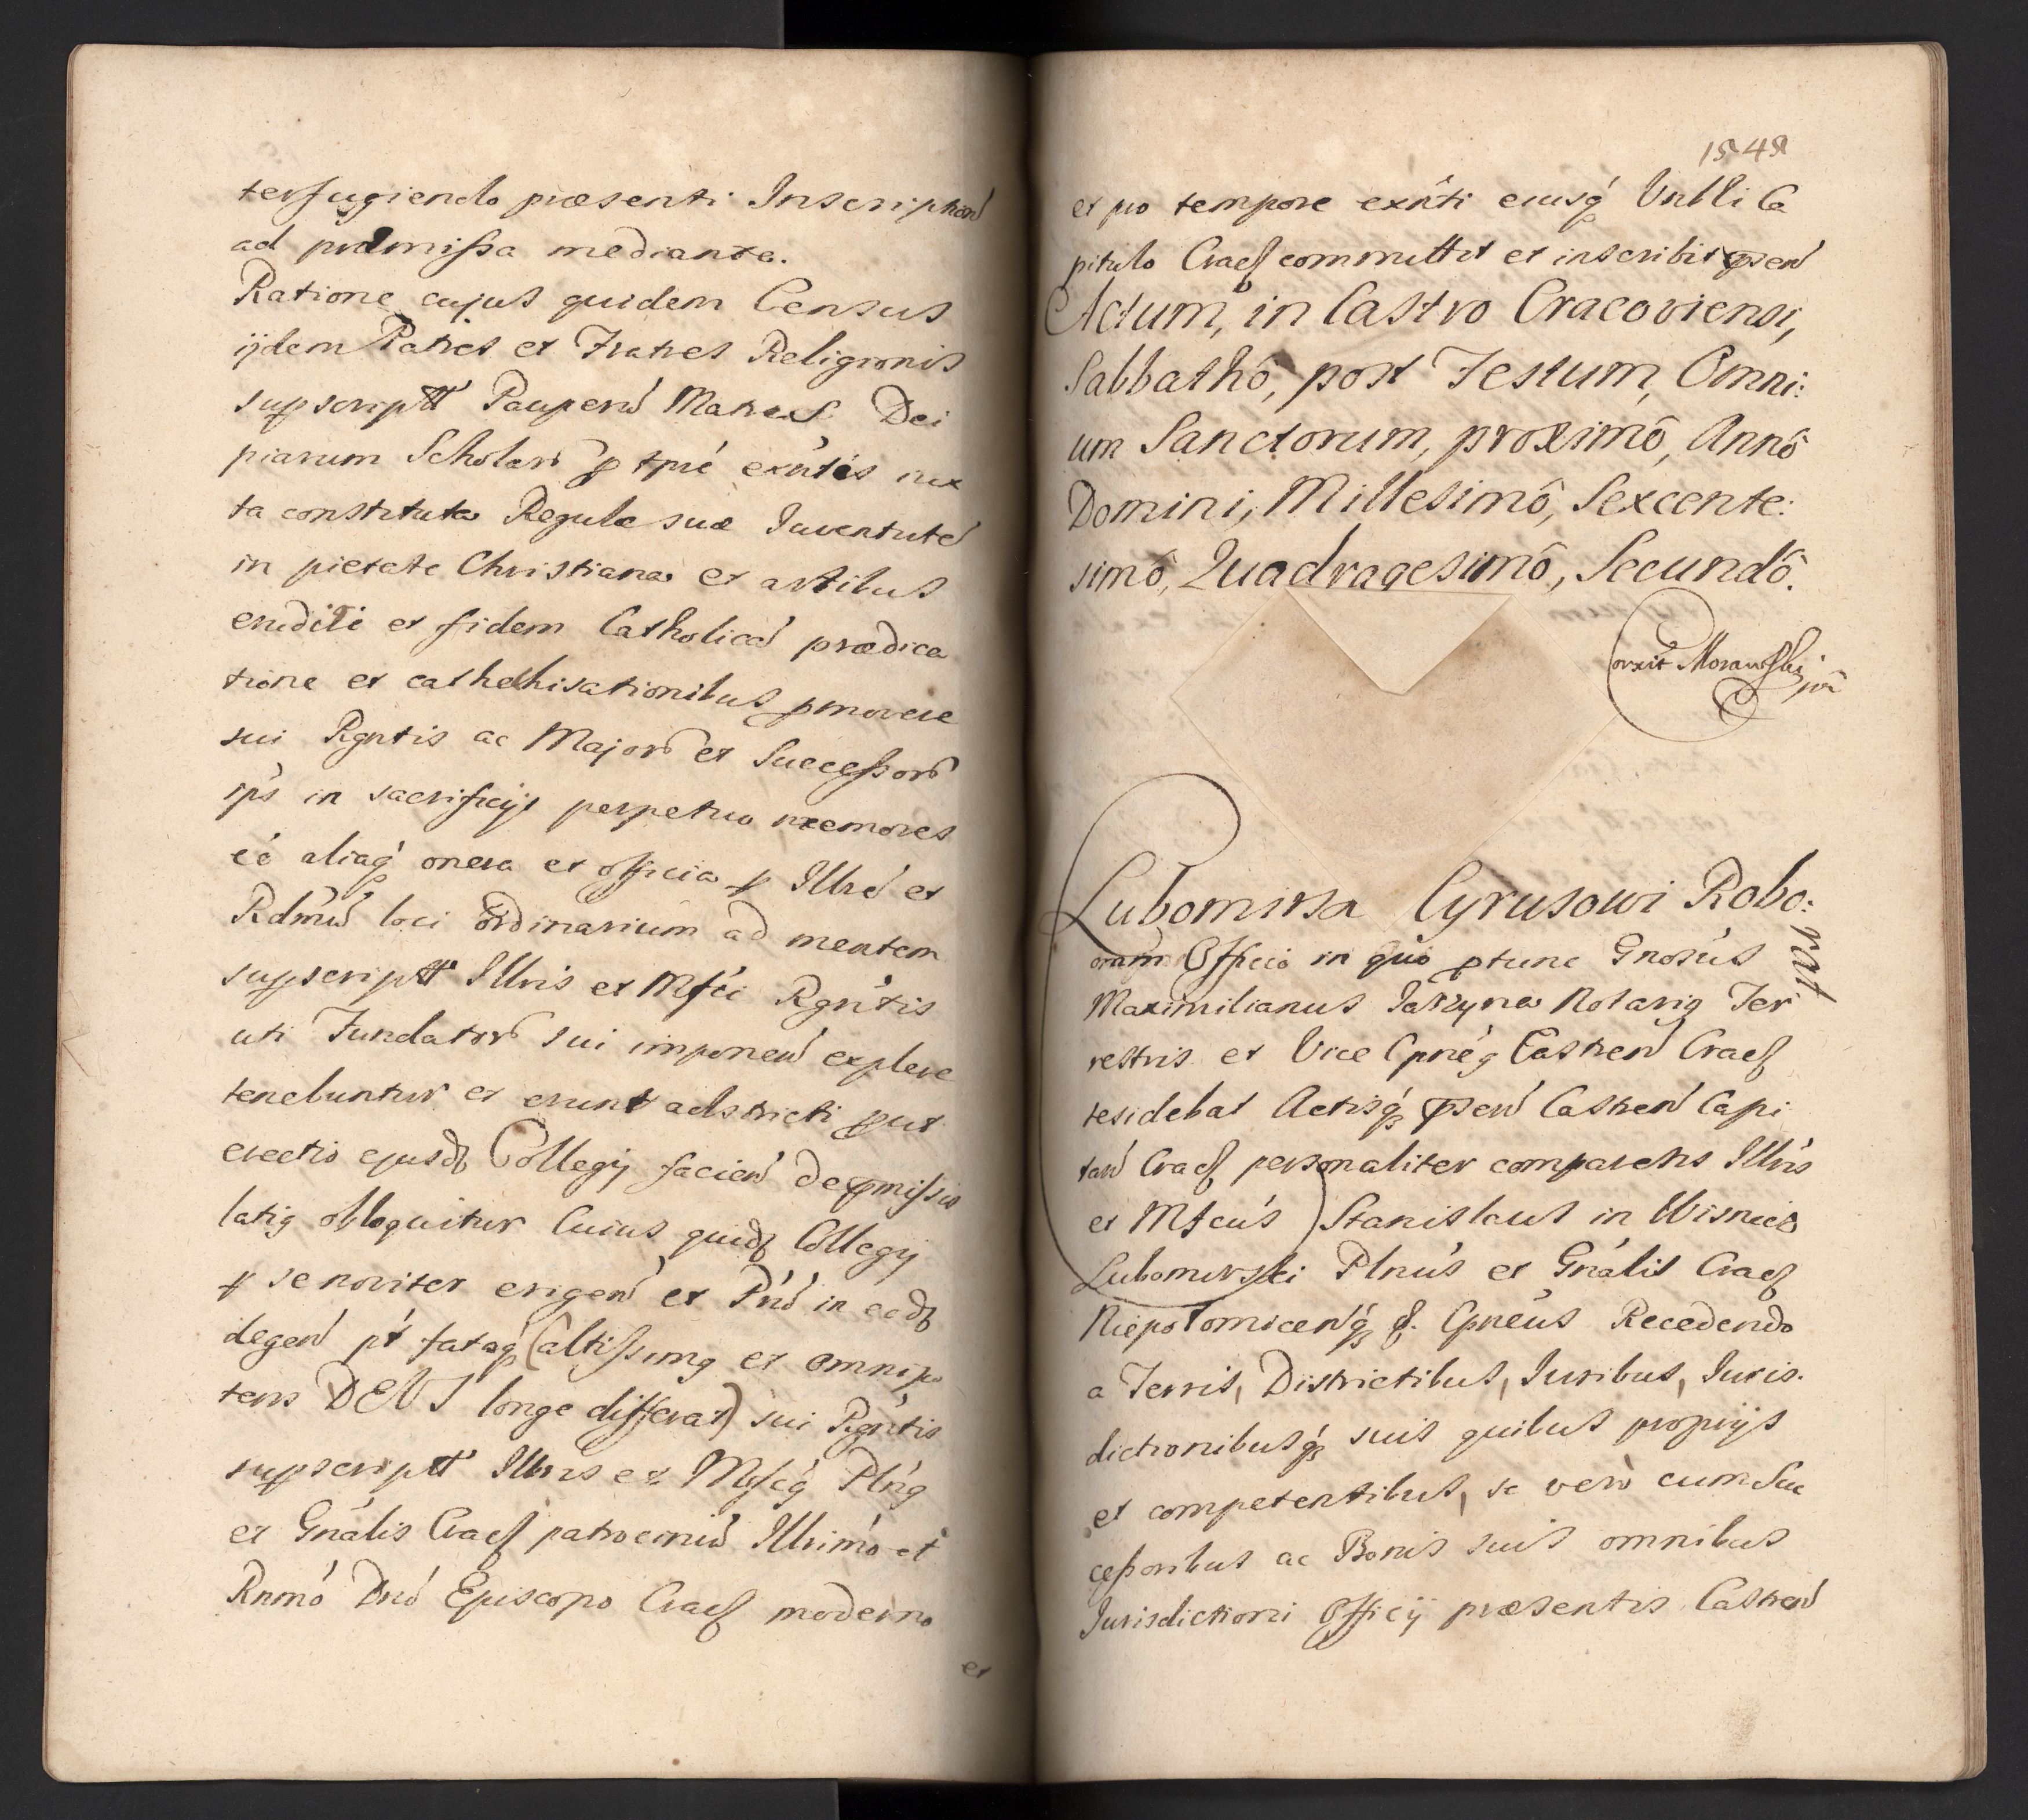 terfugiendo præsenti Inscriptioń
ad præmissa mediante.
Ratione cujus quidem Census
ijdem Patres et Fratres Religionis
supscriptæ Pauperú Matris Dei
piarum Scholarú p tpré exńtes iux
ta constituta Regulæ suæ Iuventuté
in pietate Christiana et artibus
erudiri et fidem Catholicá prædica
tione et cathehisationibus pmovere
sui Rgntis ac Majorú et Successorú
ips in sacrificijs perpetuo memores
éé aliaq́ onera et officia p Illré et
Rdmú loci ordinarium ad mentem
supscriptt Illris et Mfci Rgńtis
uti Fundatorú sui imponeń explere
tenebuntur et erunt adstricti put
erectio ejusd Collegij facień de pmissis
latig obloquitur Cuius quid Collegij
p se noviter erigeń et Pnú in eod
degeń pt fataq́ (altissimg et omnipo
tens DEUS longe differat) sui Rgńtis
supscriptt Illris et Mfcg Plng
et Gnális Cracf patrociniú Illrimó et
Rnmó Dnó Episcopo Cracf moderno
et
1548
et pro tempore exńti eiusq́ Vnbli Ca
pitulo Cracf committit et inscribit pseń
Actum, in Castro Cracoviensi,
Sabbathô, post Festum, Omni:
um Sanctorum, proximô, Annô
Domini, Millesimô, Sexcente:
simô, Quadragesimô, Secundô.
Corxit Morawski mp
Lubomirsa Cyrusowi Robo:
rat
Coram Officio in quo ptunc Gnosús
Maximilianus Iarzyna Notarig Ter
restris et Vice Cpnég Castreń Cracf
residebat Actisq́ pseń Castreń Capi
tań Cracf personaliter comparens Illris
et Mfcús Stanislaus in Wisnicz
Lubomirski Plnús et Gnális Cracf
Niepołomiceńq́ &. Cpnéus Recedendo
a Terris, Districtibus, Iuribus, Iuris.
dictionibusq́ suis quibus proprijs
et competentibus, se vero cum Suc
cessoribus ac Bonis suis omnibus
Jurisdictioni Officij præsentis Castreń